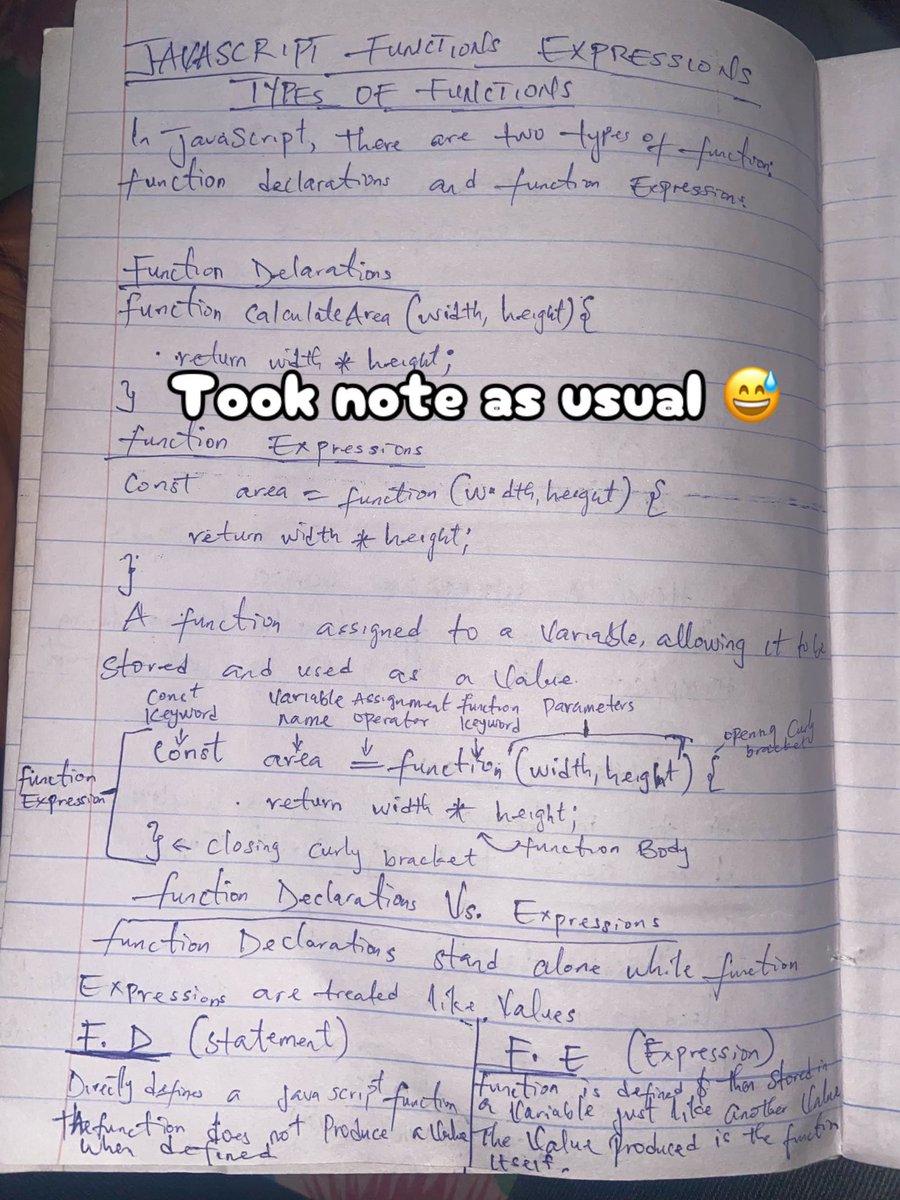 JAVASCRIPT FUNCTIONS EXPRESSIONS
TYPES OF FUNCTIONS
In JavaScript, there are two types of function:
function declarations and function Expressions
Function Delarations
function calculateArea (width, height) {
return width * height;
}
Took note as usual 😅
function Expressions
Const area = function (width, height) {
return width * height;
};
A function assigned to a Variable, allowing it to be
Stored and used as a Value.
Const Keyword
Variable name
Assignment operator
function Keyword
Parameters
opening Curly bracket
Const area = function (width, height) {
function Expression
return width * height;
} ← closing curly bracket
function Body
function Declarations Vs. Expressions
function Declarations stand alone while function
Expressions are treated like Values
F. D (Statement)
Directly defines a javascript function
the function does not Produce a Value
when defined
F. E (Expression)
function is defined & then Stored in
a Variable just like another Value
The Value produced is the function
itself.